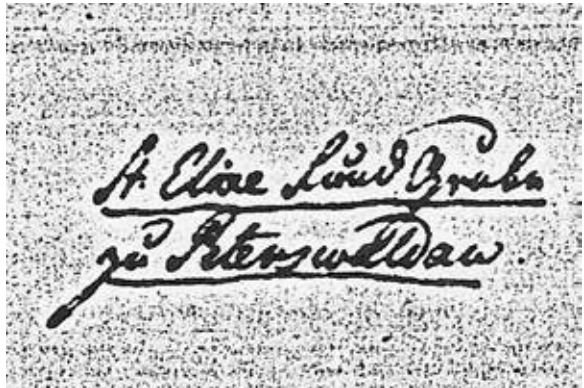 St. Eliae Fund Grube
zu Peterswaldau.